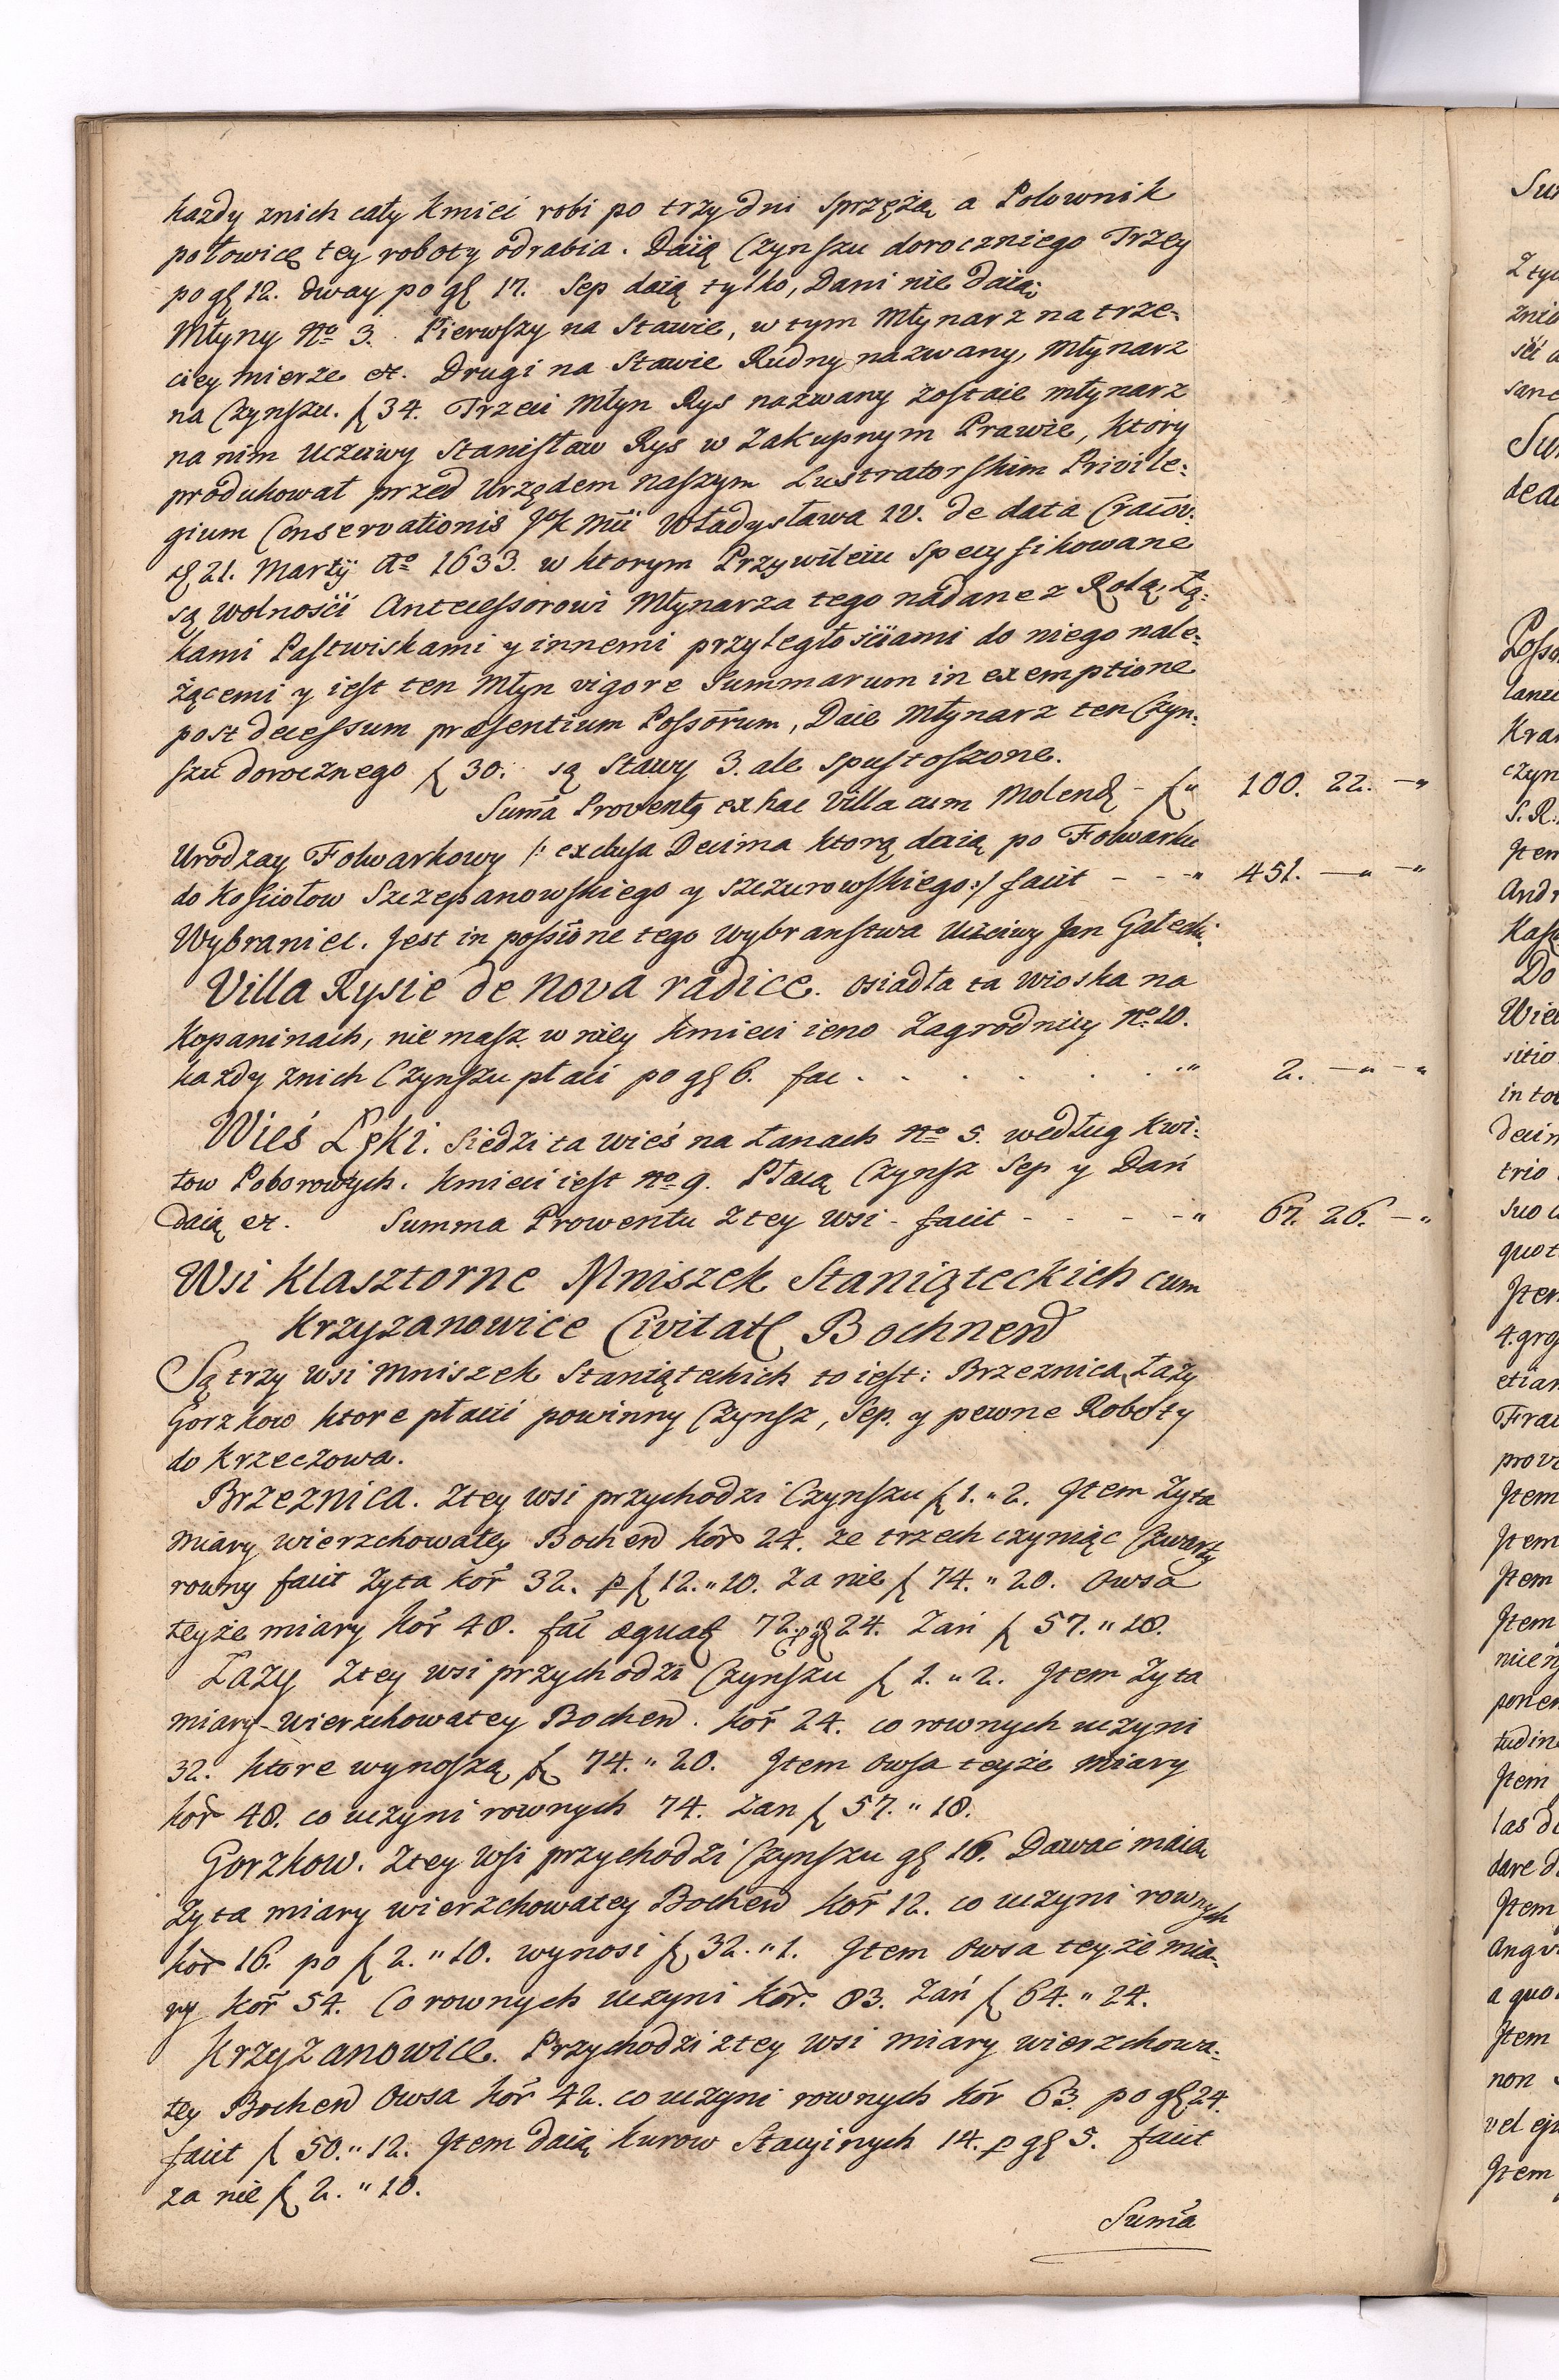 kazdy znich cały kmieć robi po trzy dni sprzężą a Połownik
połowicę tey roboty odrabia. Daią Czynszu doroczniego Trzey
po gr 12. dway po gr 17. Sep daią tylko, Dani nie daią.
Młyny No 3. Pierwszy na Stawie, w tym Młynarz na trze-
ciey mierze et. Drugi na Stawie Rudny nazwany, Młynarz
na Czynszu. f 34. Trzeci Młyn Rys nazwany zostaie młynarz
na nim Uczciwy Stanisław Rys w Zakupnym Prawie, ktory
produkował przed Urzędem naszym Lustratorskim Privile:
gium Conservationis Mti Władysława IV. de data Cracov:
21. Martÿ Ao 1633. w ktorym Przywileiu specyfikowane
są wolności Antecessorowi Młynarza tego nadane z Rolą, Łą:
kami Pastwiskami y innemi przyległościami do niego nale:
żącemi y iest ten Młyn vigore Summarum in exemptione
post decessum præsentium Possorum, Daie Młynarz ten Czyn:
szu dorocznego f 30. są Stawy 3. ale spustoszone.
Suma Proventq ex hac Villa cum Molend - f " 100. 22. — "
Urodzay Folwarkowy /: exclusa Decima ktorą daią po Folwarku
do Kosciołow Szczepanowskiego y szczurowskiego :/ facit - - - " 451. — " — "
Wybraniec. Jest in possione tego wybranstwa Uczciwy Jan Gałeck:
Villa Rysie de nova radice. osiadła ta wioska na
Kopaninach, nie masz w niey kmieci ieno Zagrodnicy No 10.
kazdy znich Czynszu płaci po gr 6. fac . . . . . . " 2. — " — "
Wieś Łęki. Siedzi ta wieś na Łanach No 5. według Kwi:
tow Poborowych. Kmieci iest No 9. Płacą Czynsz Sep y Dań
daią et. Summa Prowentu z tey wsi - facit - - - - " 67. 26. — "
Wsi Klasztorne Mniszek Staniąteckich cum
Krzyzanowice Civitat Bochnen
Są trzy wsi Mniszek Staniąteckich to iest: Brzeznica, Łazy
Gorzkow ktore płacić powinny Czynsz, Sep. y pewne Roboty
do Krzeczowa.
Brzeznica. Z tey wsi przychodzi Czynszu f 1. " 2. Item Zyta
miary wierzchowatey Bochen kor 24. ze trzech czyniąc Czwarty
rowny facit zyta kor 32. p f 12. " 10. za nie f 74. " 20. Owsa
teyże miary kor 48. fac æqual 72. p gr 24. Zań f 57. " 18.
Łazy z tey wsi przychodzi Czynszu f 1. " 2. Item Zyta
miary wierzchowatey Bochen. kor 24. co rownych uczyni
32. ktore wynoszą f 74. " 20. Item Owsa teyże miary
kor 48. co uczyni rownych 74. Zan f 57. " 18.
Gorzkow. Z tey wsi przychodzi Czynszu gr 16. Dawać maią
Zyta miary wierzchowatey Bochen kor 12. co uczyni rownych
kor 16. po f 2. " 10. wynosi f 32. " 1. Item Owsa teyże mia-
ry kor 54. Co rownych uczyni kor. 83. Zań f 64. " 24.
Krzyzanowice. Przychodzi z tey wsi miary wierzchowa-
tey Bochen Owsa kor 42. co uczyni rownych kor 63. po gr 24.
facit f 50. " 12. Item daią kurow Stacyinych 14. p gr 5. facit
za nie f 2. " 10.
Suma